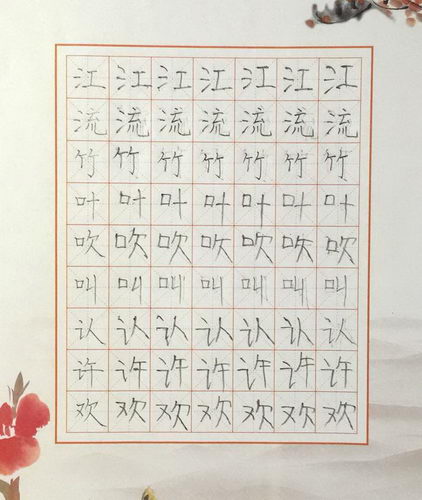 江江江江江江江
流流流流流流流
竹竹竹竹竹竹竹
叶叶叶叶叶叶叶
吹吹吹吹吹吹吹
叫叫叫叫叫叫叫
认认认认认认认
许许许许许许许
欢欢欢欢欢欢欢